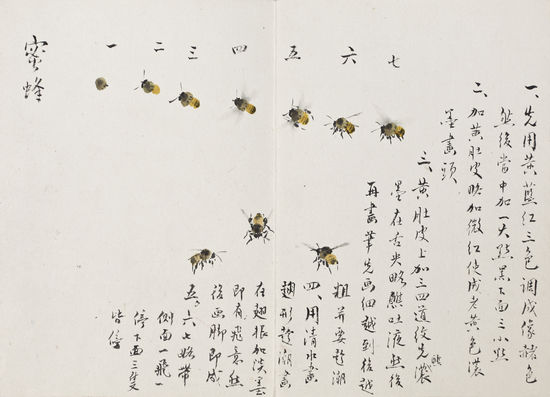 一、先用黃藍紅三色調成像赭色
然後當中加一大點黑下面三小點
二、加黃肚皮略加微紅使成老黃色濃
墨畫頭
三、黃肚皮上加三四道紋先濃
墨在舌尖略醮吐液然後
再畫筆先画細越到後越
粗并要趁潮
四、用清水畫
翅形趁潮畫
在翅根加淡墨
即有飛意然
後画脚即成
五、六七略帶
側面一飛一
停下面三隻
皆停
一 二 三 四 五 六 七
蜜蜂